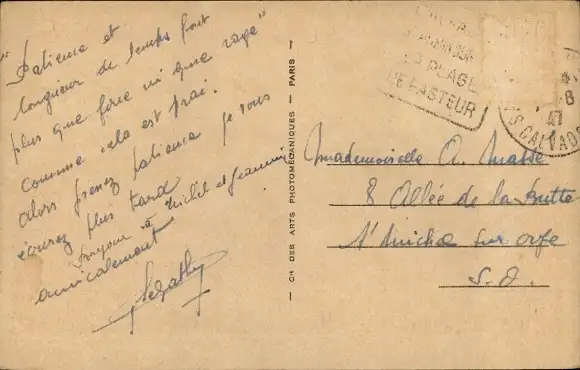 "Patience et
longueur de temps font
plus que force ni que rage"
comme cela est vrai.
alors prenez patience je vous
écrirez plus tard
Bonjour à Michel et Jeannine
amicalement
— Cie DES ARTS PHOTOMÉCANIQUES — PARIS —
LA PLAGE
DE PASTEUR
CALVADOS
Mademoiselle A. Masse
8 Allée de la Butte
St Michel sur orge
S. O.